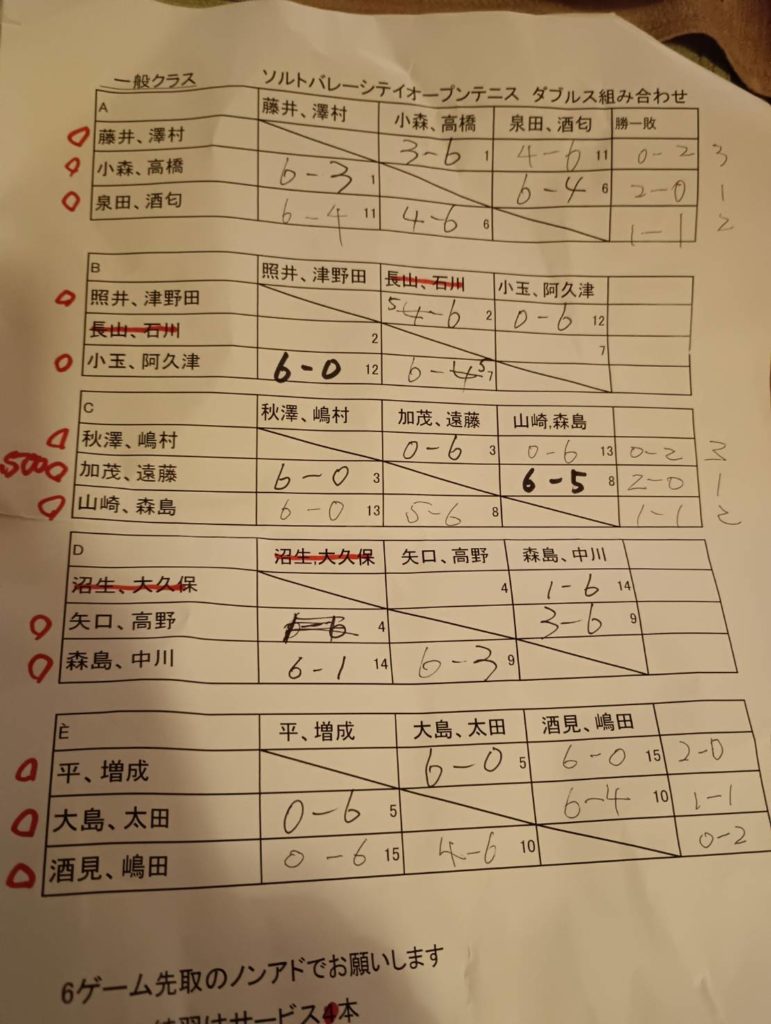 一般クラス ソルトバレーシテイオープンテニス ダブルス組み合わせ
A 藤井、澤村 小森、高橋 泉田、酒匂 勝ー敗
藤井、澤村 3-6 1 4-6 11 0-2 3
小森、高橋 6-3 1 6-4 6 2-0 1
泉田、酒匂 6-4 11 4-6 6 1-1 2
B 照井、津野田 長山、石川 小玉、阿久津
照井、津野田 5 4-6 2 0-6 12
長山、石川 2 7
小玉、阿久津 6-0 12 6-4 5 7
C 秋澤、嶋村 加茂、遠藤 山崎,森島
秋澤、嶋村 0-6 3 0-6 13 0-2 3
5000 加茂、遠藤 6-0 3 6-5 8 2-0 1
山崎、森島 6-0 13 5-6 8 1-1 2
D 沼生,大久保 矢口、高野 森島、中川
沼生、大久保 4 1-6 14
矢口、高野 4 3-6 9
森島、中川 6-1 14 6-3 9
E 平、増成 大島、太田 酒見、嶋田
平、増成 6-0 5 6-0 15 2-0
大島、太田 0-6 5 6-4 10 1-1
酒見、嶋田 0-6 15 4-6 10 0-2
6ゲーム先取のノンアドでお願いします
サービス4本